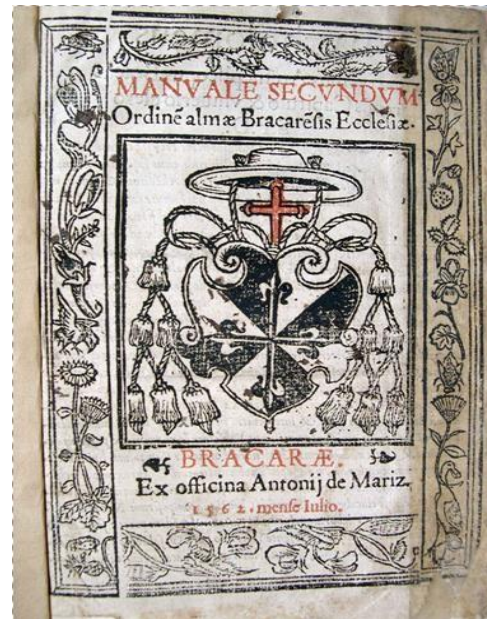 MANVALE SECVNDVM
Ordinē almæ Bracarēsis Ecclesiæ.
BRACARÆ.
Ex officina Antonij de Mariz.
1562. mense Iulio.